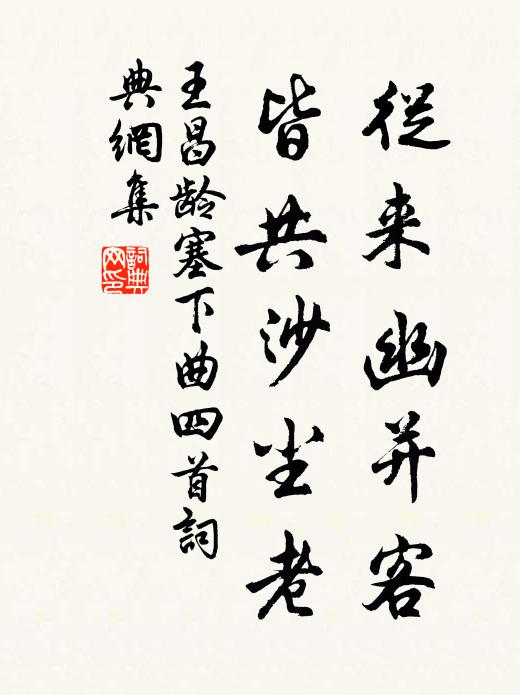 從来幽并客
皆共沙尘老
王昌龄塞下曲四首詞
典網集
詞典
网印